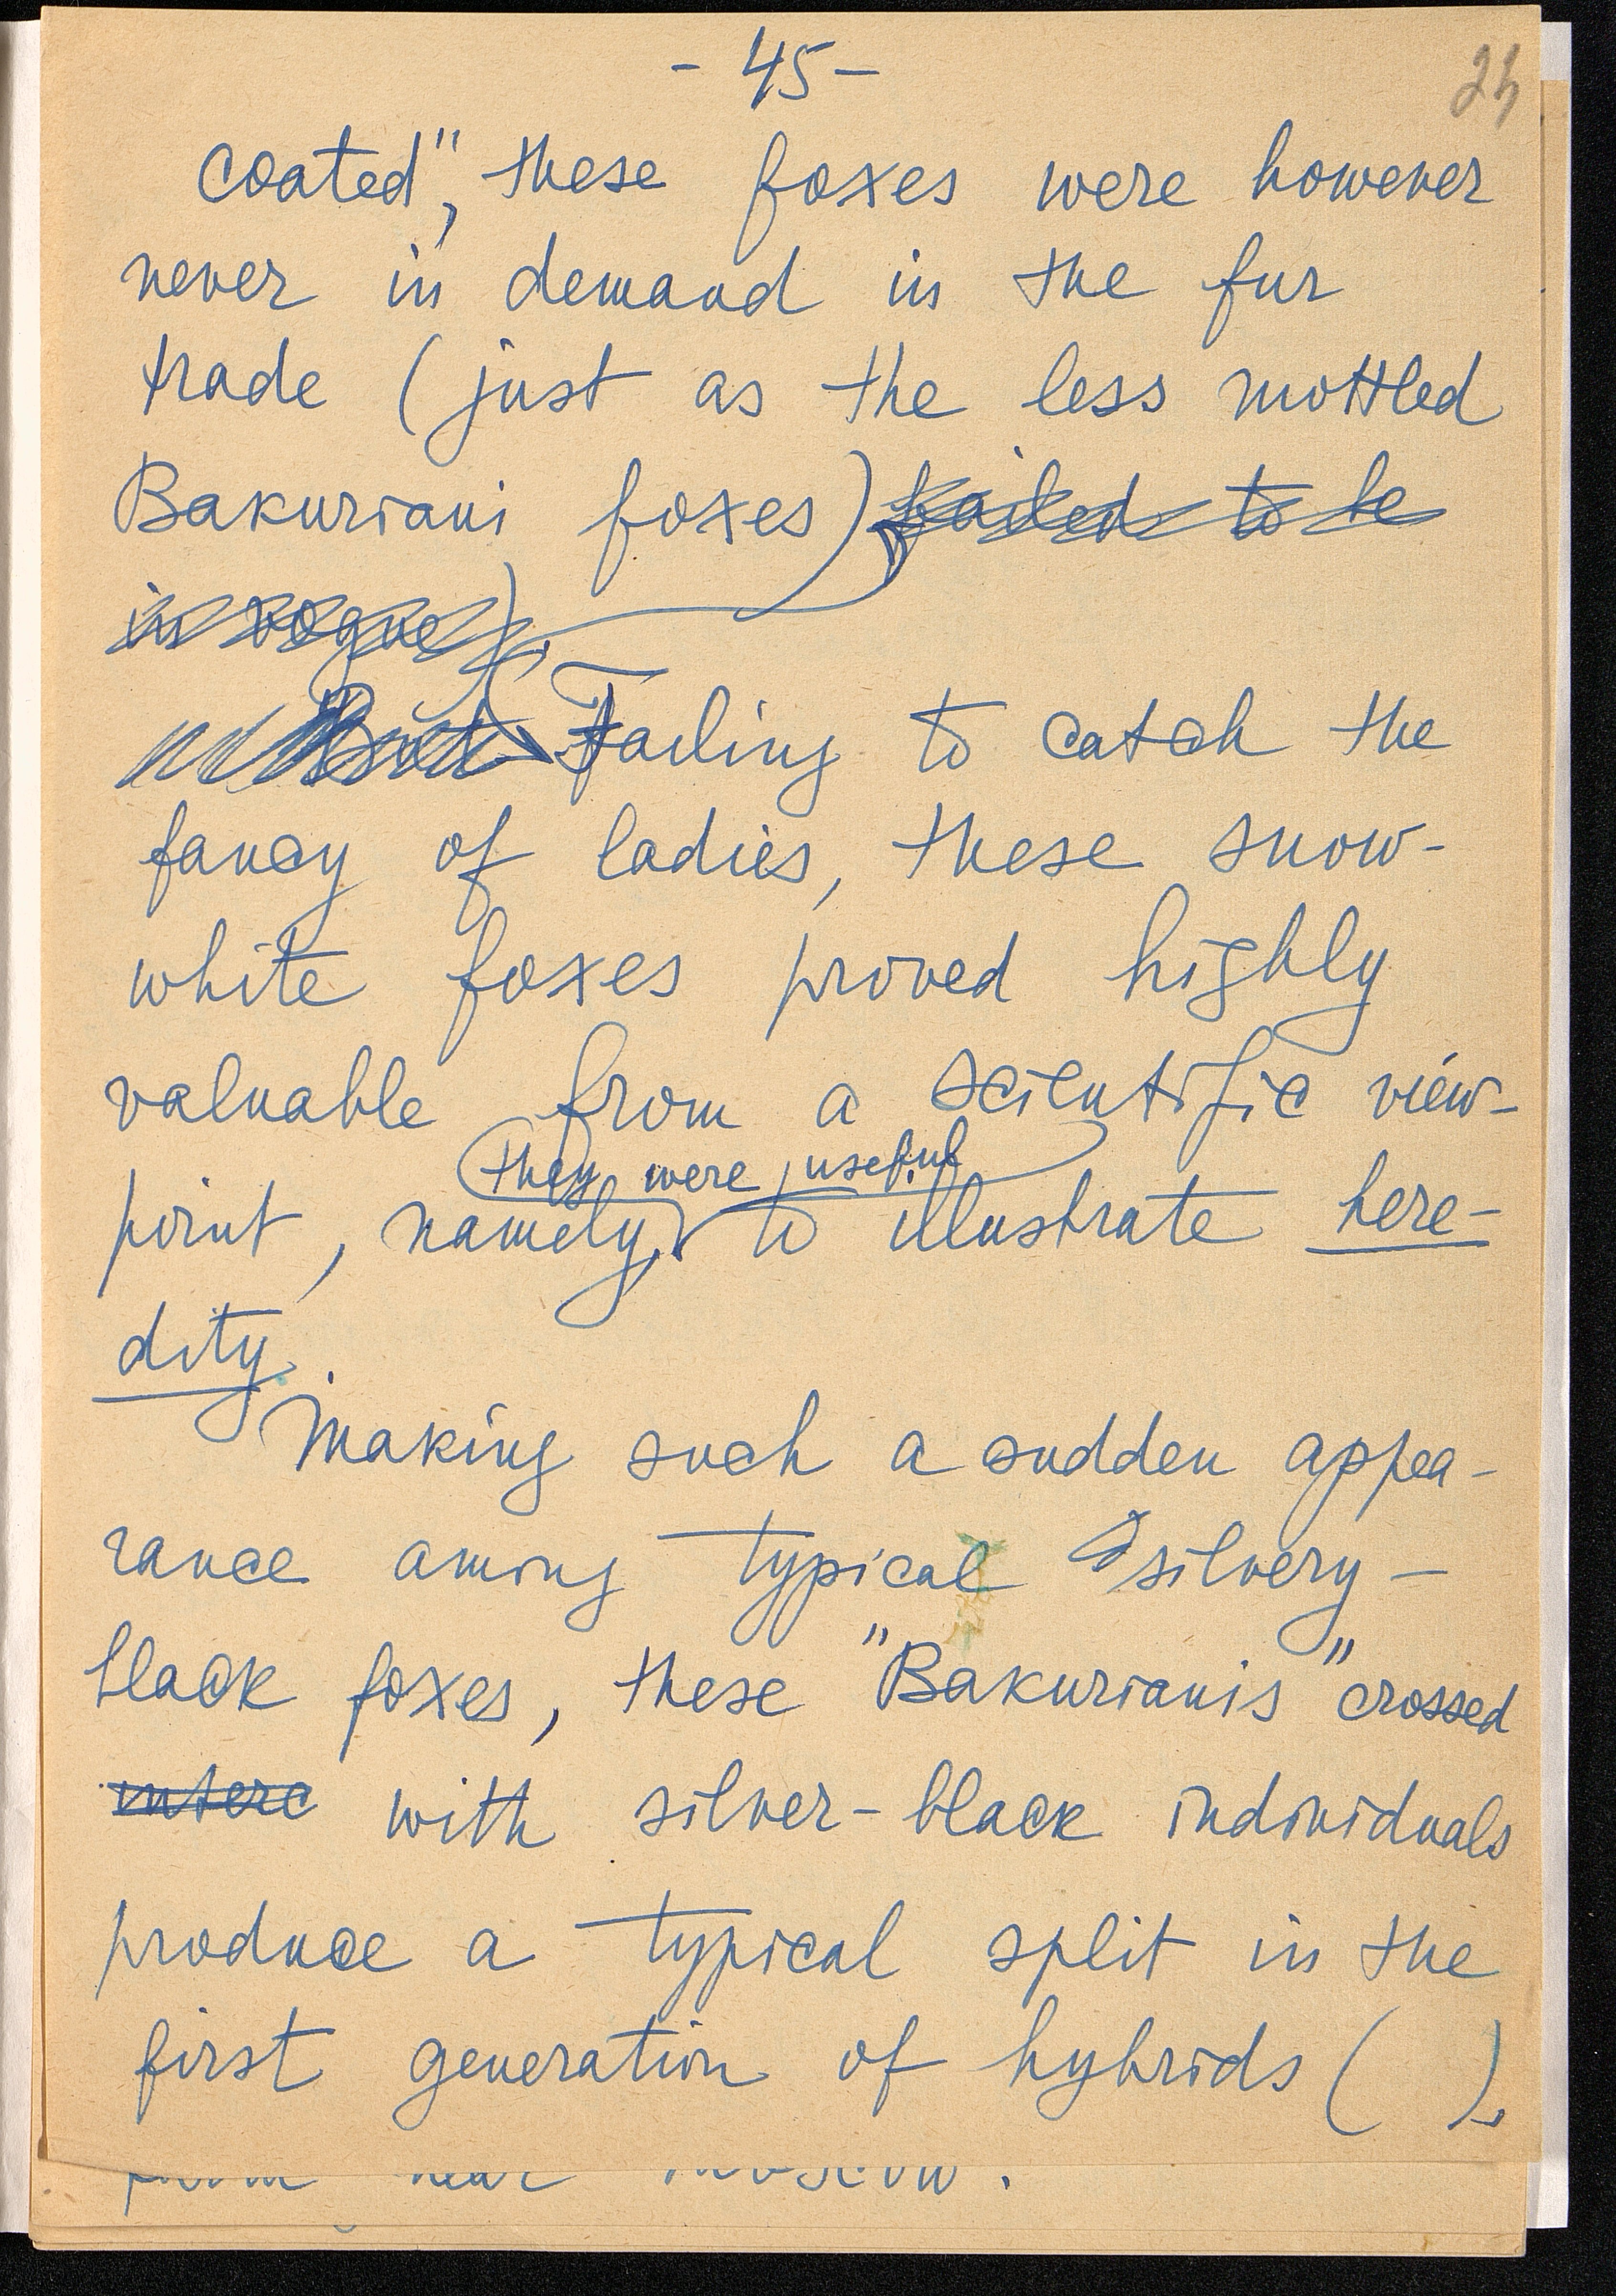 - 45 -
coated", these foxes were however
never in demand in the fur
trade (just as the less mottled
Bakuriani foxes) failed to be
in vogue).
But Failing to catch the
fancy of ladies, these snow-
white foxes proved highly
valuable from a scientific view-
they were useful
point, namely, to illustrate here-
dity.
Making such a sudden appea-
rance among typical silvery-
black foxes, these "Bakurianis" crossed
interc with silver-black individuals
produce a typical split in the
first generation of hybrids (   ).
near Moscow.